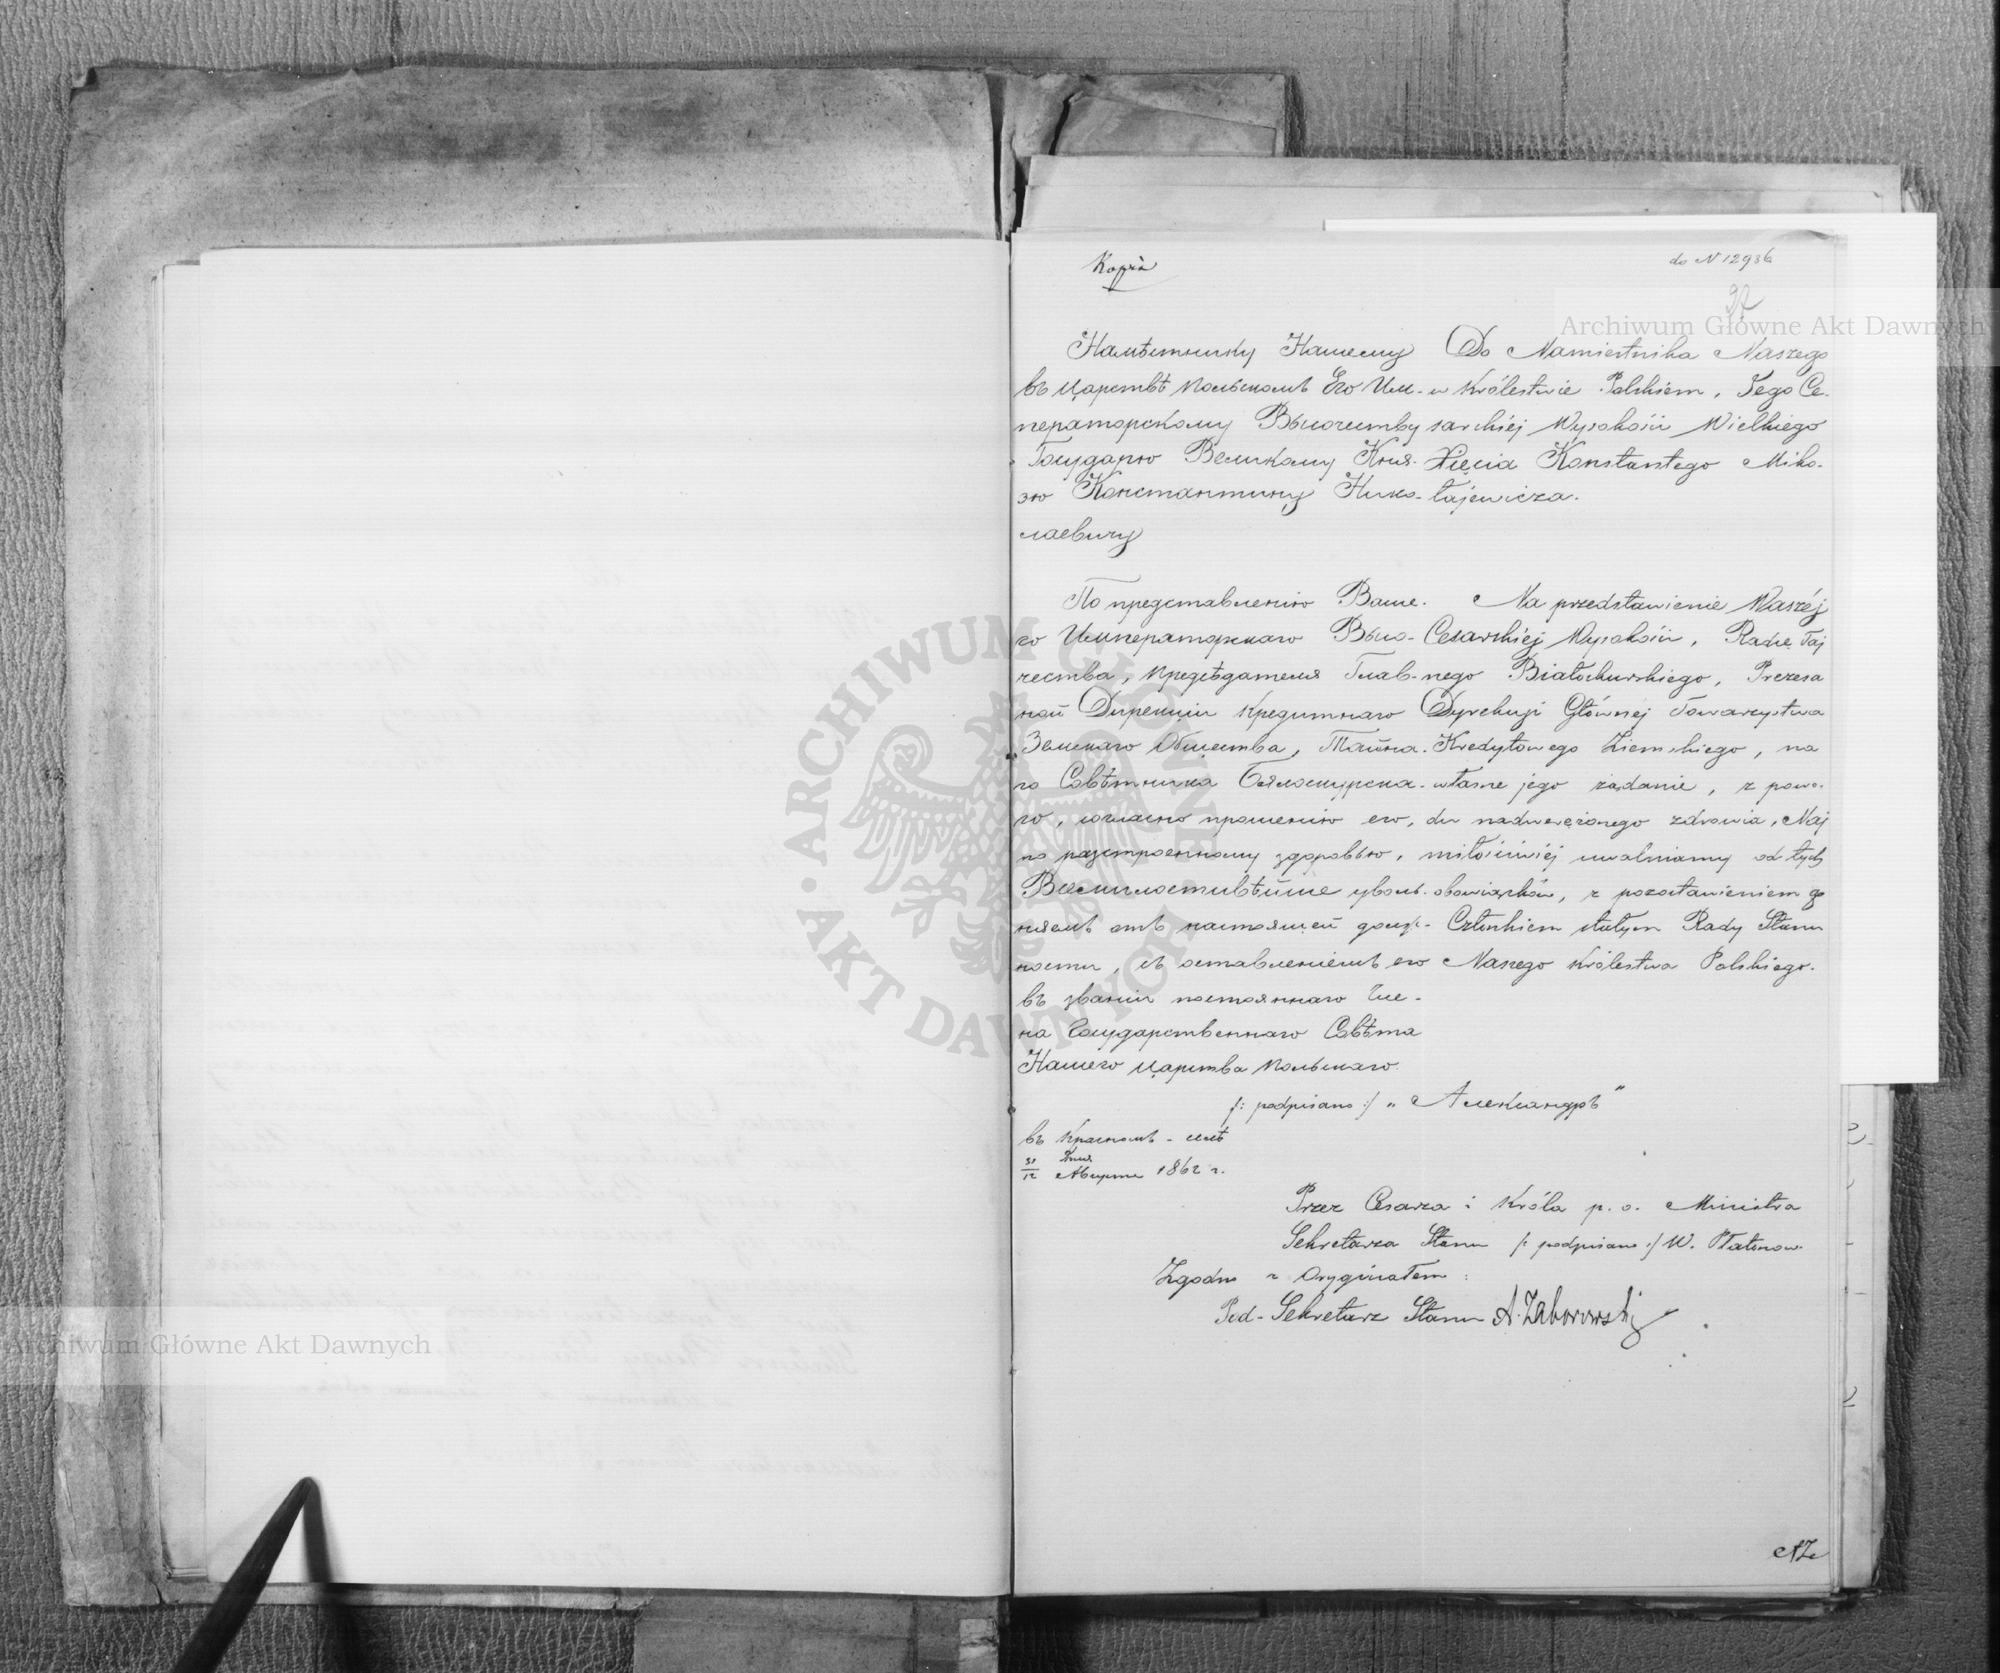 Kopja
do N 12936
37
Намѣстнику Нашему
въ Царствѣ Польскомъ Его Им-
ператорскому Высочеству
Государю Великому Кня-
зю Константину Нико-
лаевичу
Do Namiestnika Naszego
w Królestwie Polskiem, Jego Ce-
sarskiéj Wysokości Wielkiego
Xięcia Konstantego Miko-
łajewicza.
По представленію Ваше-
го Императорскаго Высо-
чества, Предсѣдателя Глав-
ной Дирекціи Кредитнаго
Земскаго Общества, Тайна-
го Совѣтника Бялоскурска-
го, согласно прошенію его,
по разстроенному здоровью,
Всемилостивѣйше уволь-
няемъ отъ настоящей долж-
ности, съ оставленіемъ его
въ званіи постояннаго Чле-
на Государственнаго Совѣта
Нашего Царства Польскаго.
Na przedstawienie Waszéj
Cesarskiéj Wysokości, Radcę Taj
nego Białoskurskiego, Prezesa
Dyrekcji Głównej Towarzystwa
Kredytowego Ziemskiego, na
własne jego żądanie, z powo-
du nadwerężonego zdrowia, Naj
miłościwiéj uwalniamy od tych
obowiązków, z pozostawieniem go
Członkiem stałym Rady Stanu
Naszego Królestwa Polskiego.
/: podpisano :/ „Александръ"
въ Красномъ-селѣ
31/12 Іюля/Августа 1862 г.
Przez Cesarza i Króla p. o. Ministra
Sekretarza Stanu /: podpisano :/ W. Płatonow.
Zgodno z Oryginałem:
Pod-Sekretarz Stanu A. Zaborowski
AZ
Archiwum Główne Akt Dawnych
Archiwum Główne Akt Dawnych
ARCHIWUM GŁÓWNE AKT DAWNYCH